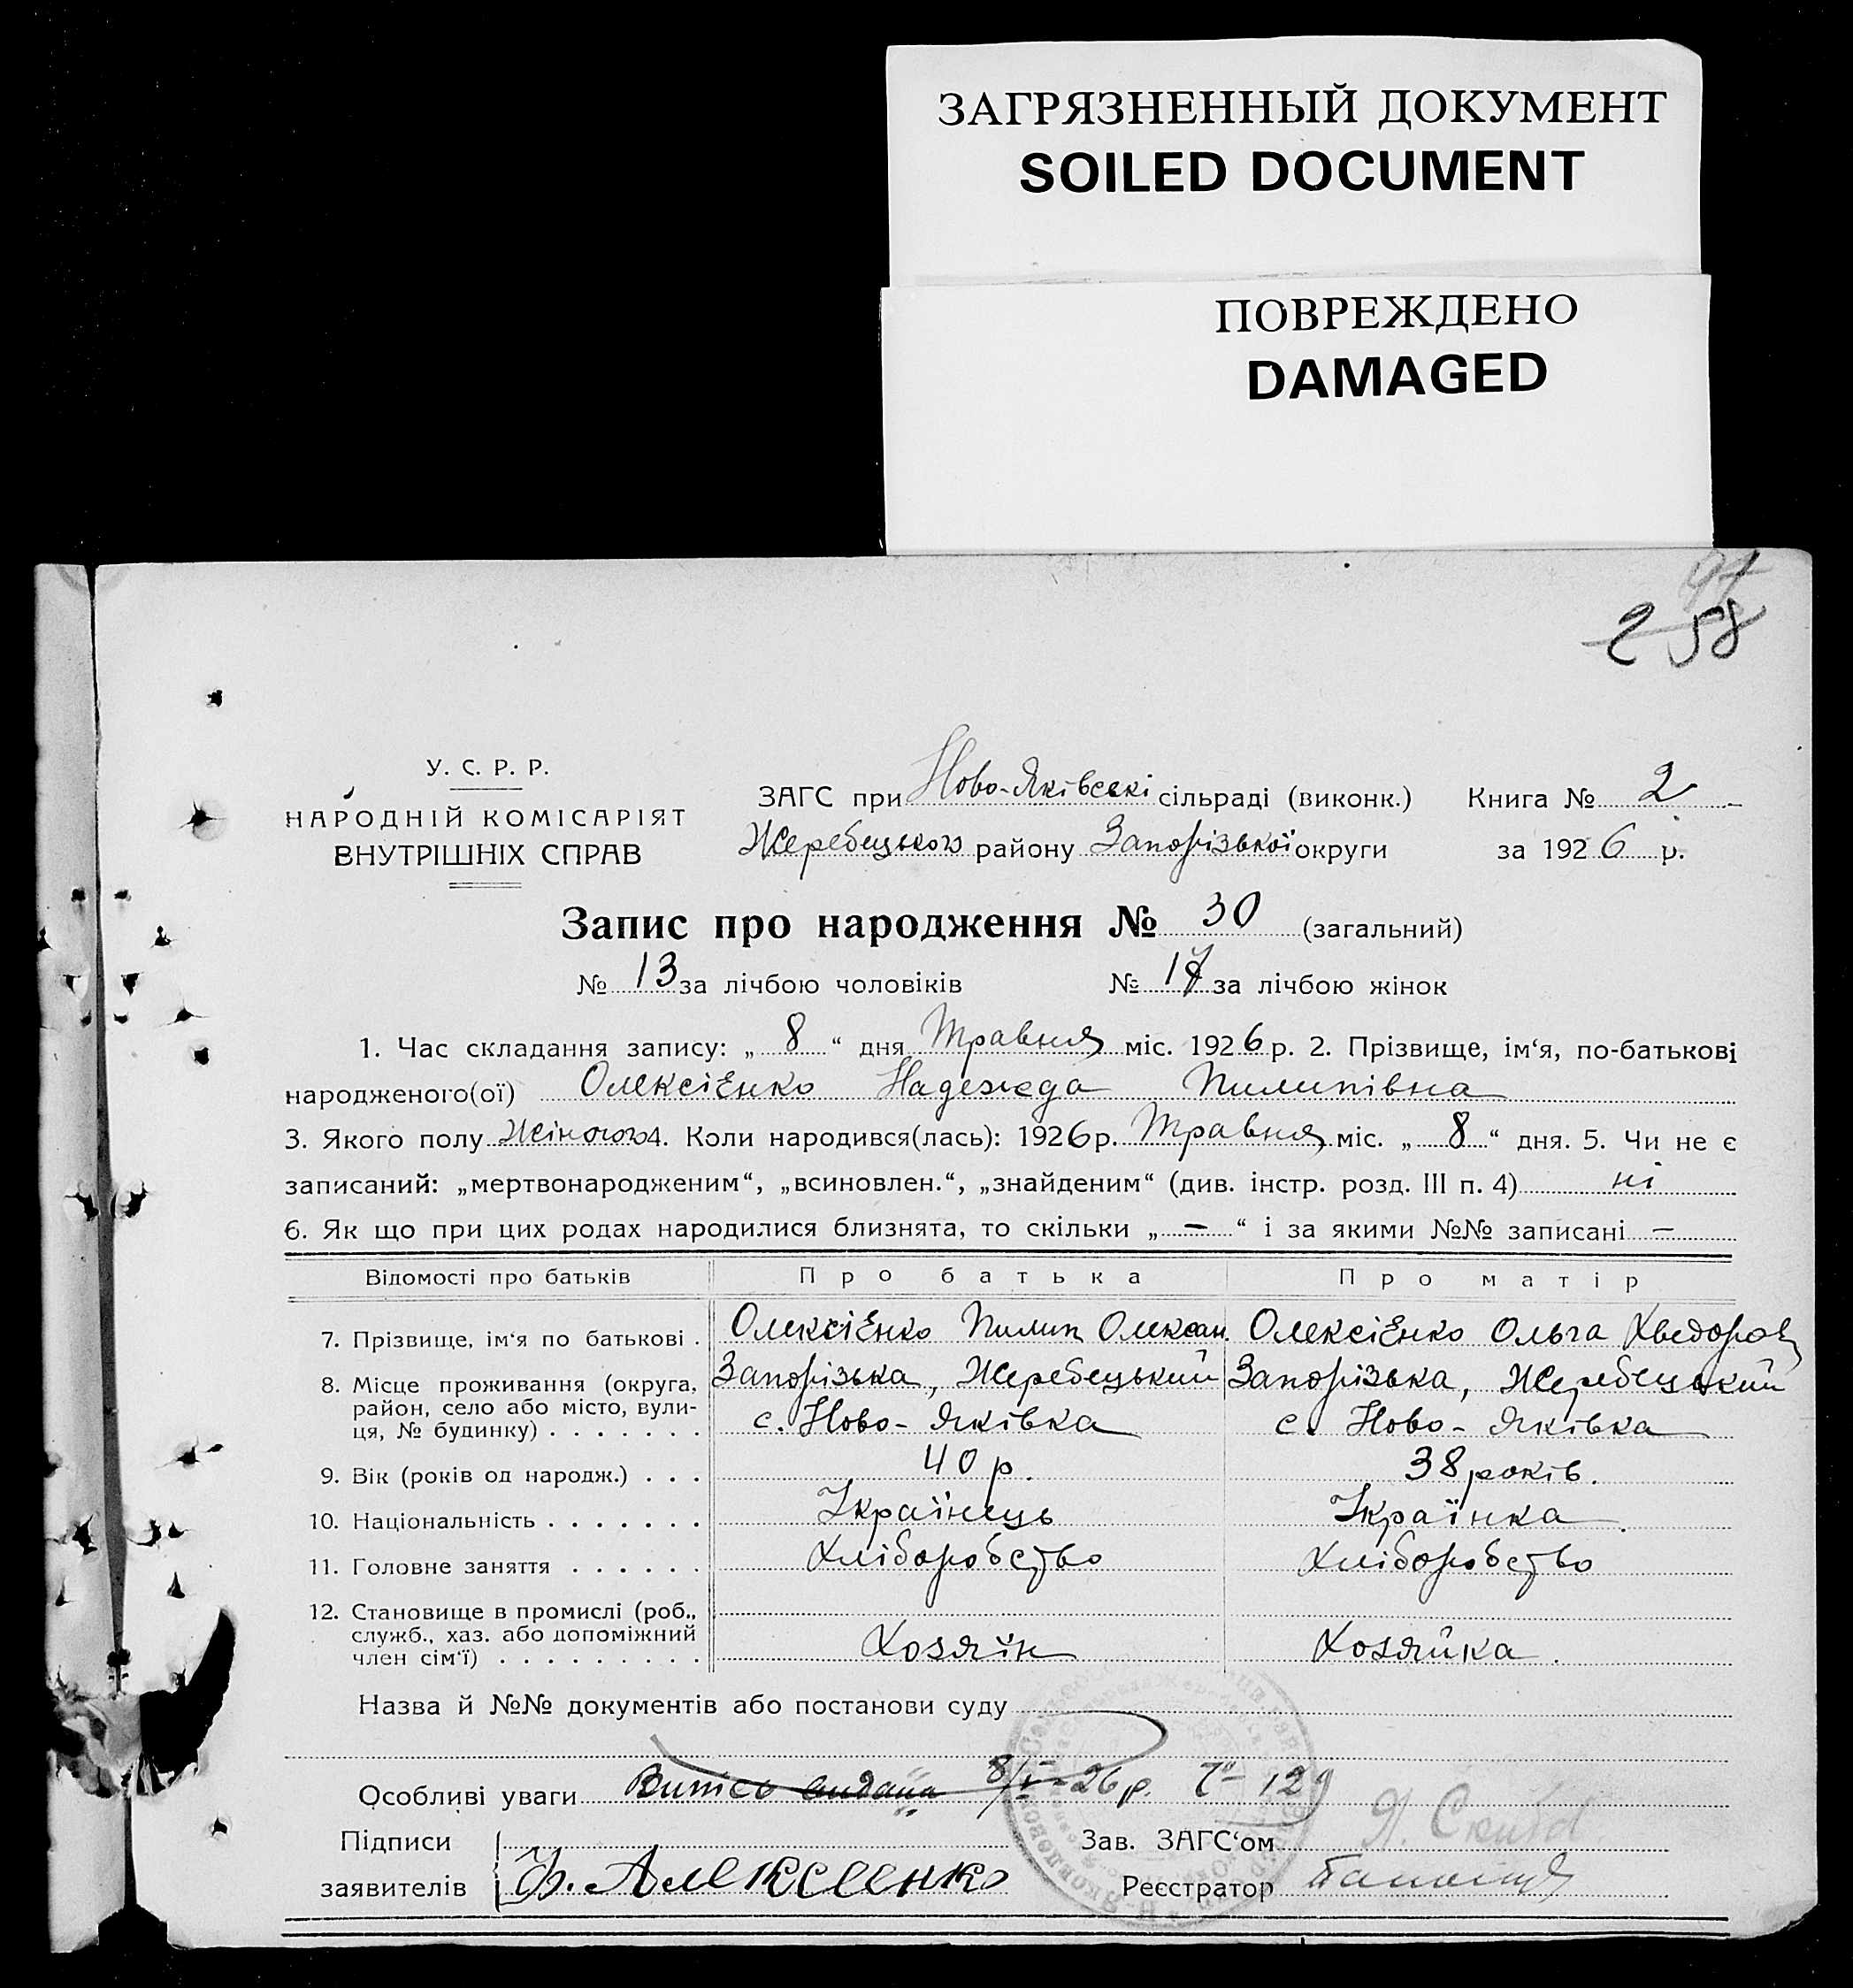 ЗАГРЯЗНЕННЫЙ ДОКУМЕНТ
SOILED DOCUMENT
ПОВРЕЖДЕНО
DAMAGED
97
258
У. С. Р. Р.
НАРОДНІЙ КОМІСАРІЯТ
ВНУТРІШНІХ СПРАВ
ЗАГС при Ново-Яківскі сільраді (виконк.) Книга № 2
Жеребецького району Запорізької округи за 1926 р.
Запис про народження № 30 (загальний)
№ 13 за лічбою чоловіків № 17 за лічбою жінок
1. Час складання запису: „ 8 “ дня Травня міс. 1926 р. 2. Прізвище, ім‘я, по-батькові
народженого(ої) Олексієнко Надежда Пилипівна
3. Якого полу Жіного 4. Коли народився(лась): 1926 р. Травня міс. „ 8 “ дня. 5. Чи не є
записаний: „мертвонародженим“, „всиновлен.“, „знайденим“ (див. інстр. розд. III п. 4) ні
6. Як що при цих родах народилися близнята, то скільки „ — “ і за якими №№ записані —
Відомості про батьків Про батька Про матір
7. Прізвище, ім‘я по батькові . Олексієнко Пилип Олексан. Олексієнко Ольга Хведоров
8. Місце проживання (округа, Запорізька, Жеребецький Запорізька, Жеребецький
район, село або місто, вули-
ця, № будинку) . . . . . . . с. Ново-Яківка с. Ново-Яківка
9. Вік (років од народж.) . . . 40 р. 38 років.
10. Національність . . . . . . . Українець Українка.
11. Головне заняття . . . . . . Хліборобство Хліборобство
12. Становище в промислі (роб.,
служб., хаз. або допоміжний
член сім‘ї) . . . . . . . . . Хозяїн Хозяйка.
Назва й №№ документів або постанови суду
Особливі уваги Витісь видана 8/V-26 р. 129
Підписи Зав. ЗАГС‘ом Я. Скиба
заявителів Ф. Алексеенко Реєстратор